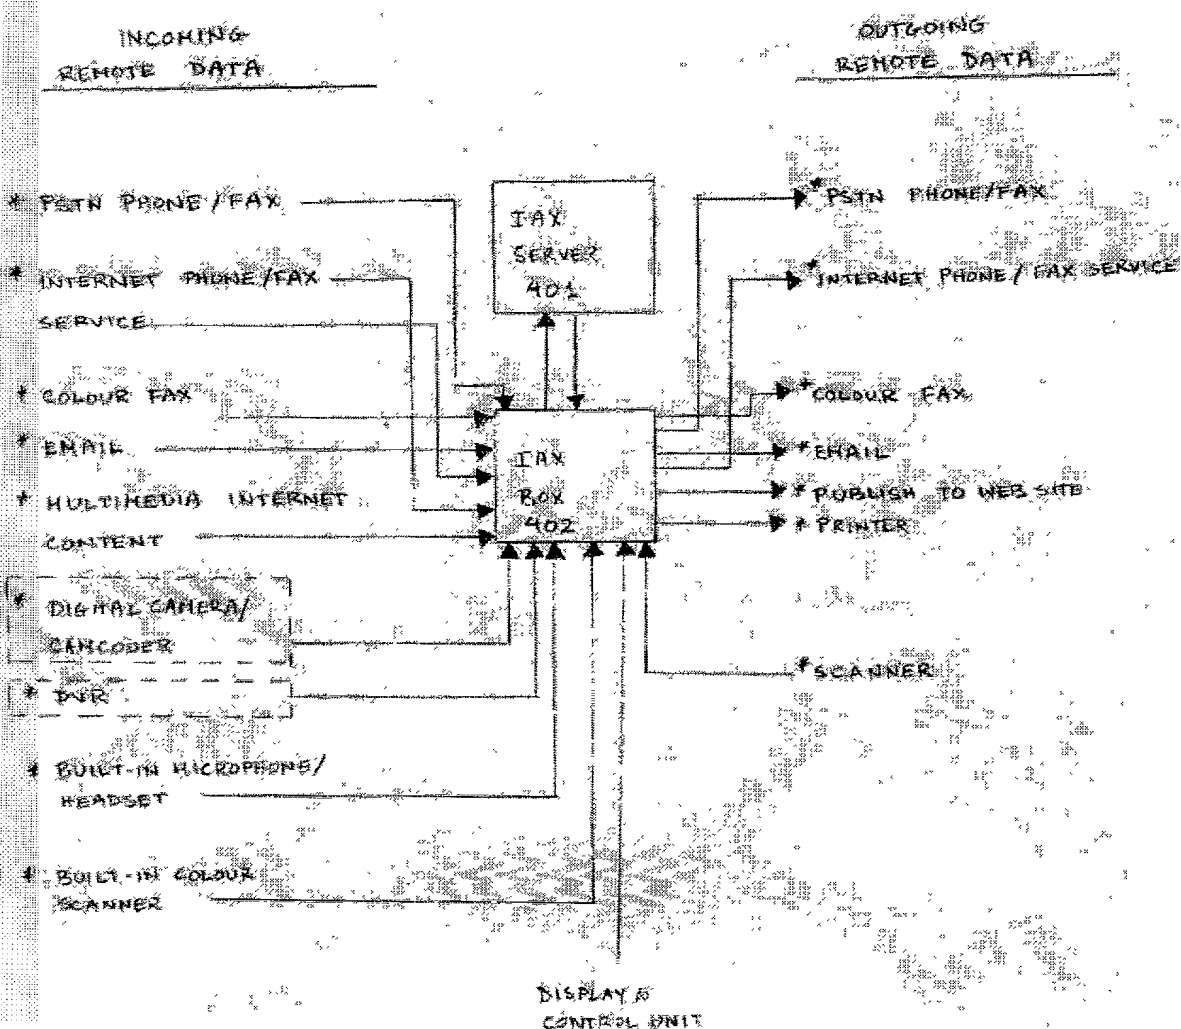 INCOMING
REMOTE DATA
OUTGOING
REMOTE DATA
* PSTN PHONE/FAX
* INTERNET PHONE/FAX
SERVICE
* COLOUR FAX
* EMAIL
* MULTIMEDIA INTERNET
CONTENT
* DIGITAL CAMERA/
CAMCODER
* DVR
* BUILT-IN MICROPHONE/
HEADSET
* BUILT-IN COLOUR
SCANNER
IAX
SERVER
401
IAX
BOX
402
* PSTN PHONE/FAX
* INTERNET PHONE/FAX SERVICE
* COLOUR FAX
* EMAIL
* PUBLISH TO WEB SITE
* PRINTER
* SCANNER
DISPLAY &
CONTROL UNIT